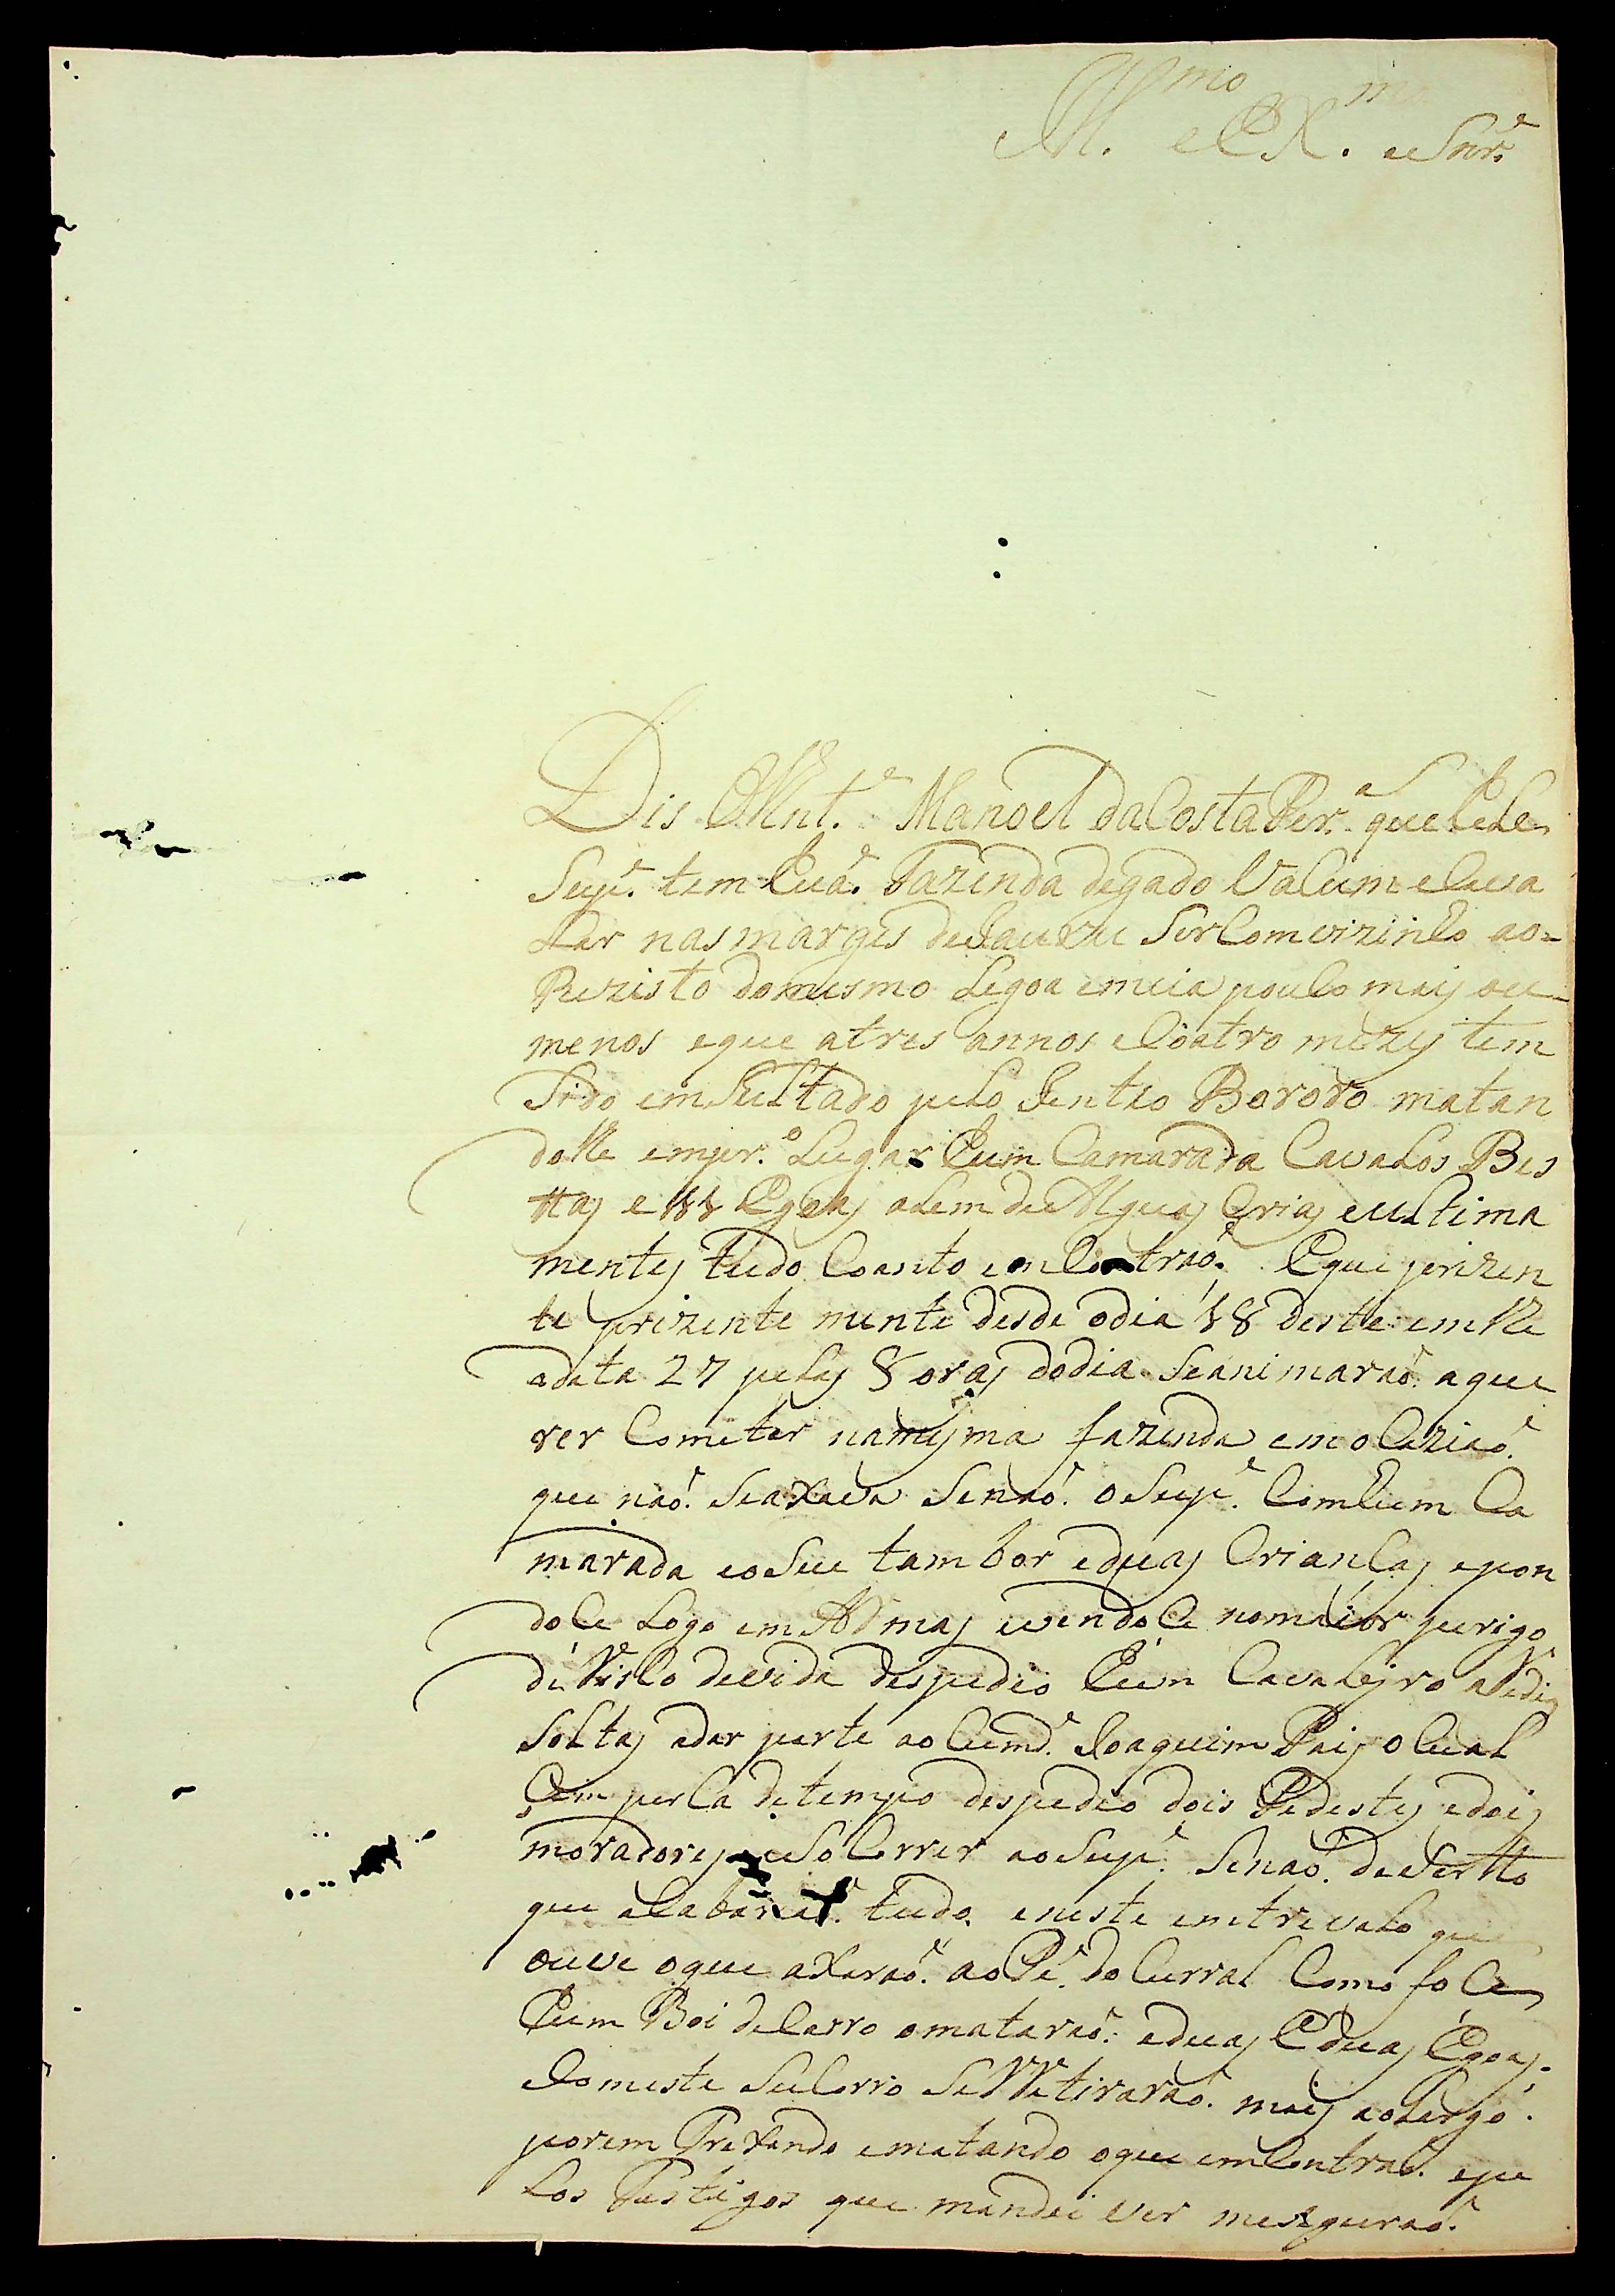 Ill.mo e Ex.mo Snr.
Dis O Alnt.e Manoel da Costa Per.a que Cele
Sup.e tem huã. Fazenda de gado Vacum e Cava
Lar nas margis de Jauru Sircomvizinho ao=
Rezisto do mesmo Legoa emeia pouco mais ou
menos eque atres annos eCoatro mezes tem
Sido emSultado pelo Gentio Bororo matan
dolle empr.o Lugar hum Camarada Cavalos Bes
ttas e 11 Egoas alem de Alguas Crias eultima
mentes tudo Coanto emContraõ. Eque prizen
te prizente mente desde odia 18 deste emthe
adata 27 pelas 8 oras dodia Seanimaraõ. aque
rer Cometer namesma fazenda em oCaziaõ.
que naõ. Seaxava Senaõ. oSup.e Comhum Ca
marada eoSeu tambor eduas Criancas epon
doCe Logo em ARmas evendoCe nomaior perigo
de Risco devida despedio hum Cavaleyro aRedia
Soltas adar parte aoCumd.e Joaquim Pais oCual
Cem perCa de tempo despedeo dois Pedestes edois
moradores aSoCorrer aoSup.e Senaõ. deSertto
que aCabavaõ. tudo. eneste emtrevalo que
ouve oque axaraõ. aoPé. doCurral Como foCe
hum Boi deCarro omataraõ. eduas Eduas Egoas.
Comeste SuCorro SeRetiraraõ. mais aoLargo.
porem Frexando ematando oque emContraõ. epe
Los Vestigos que mandei Ver meSeguraõ.